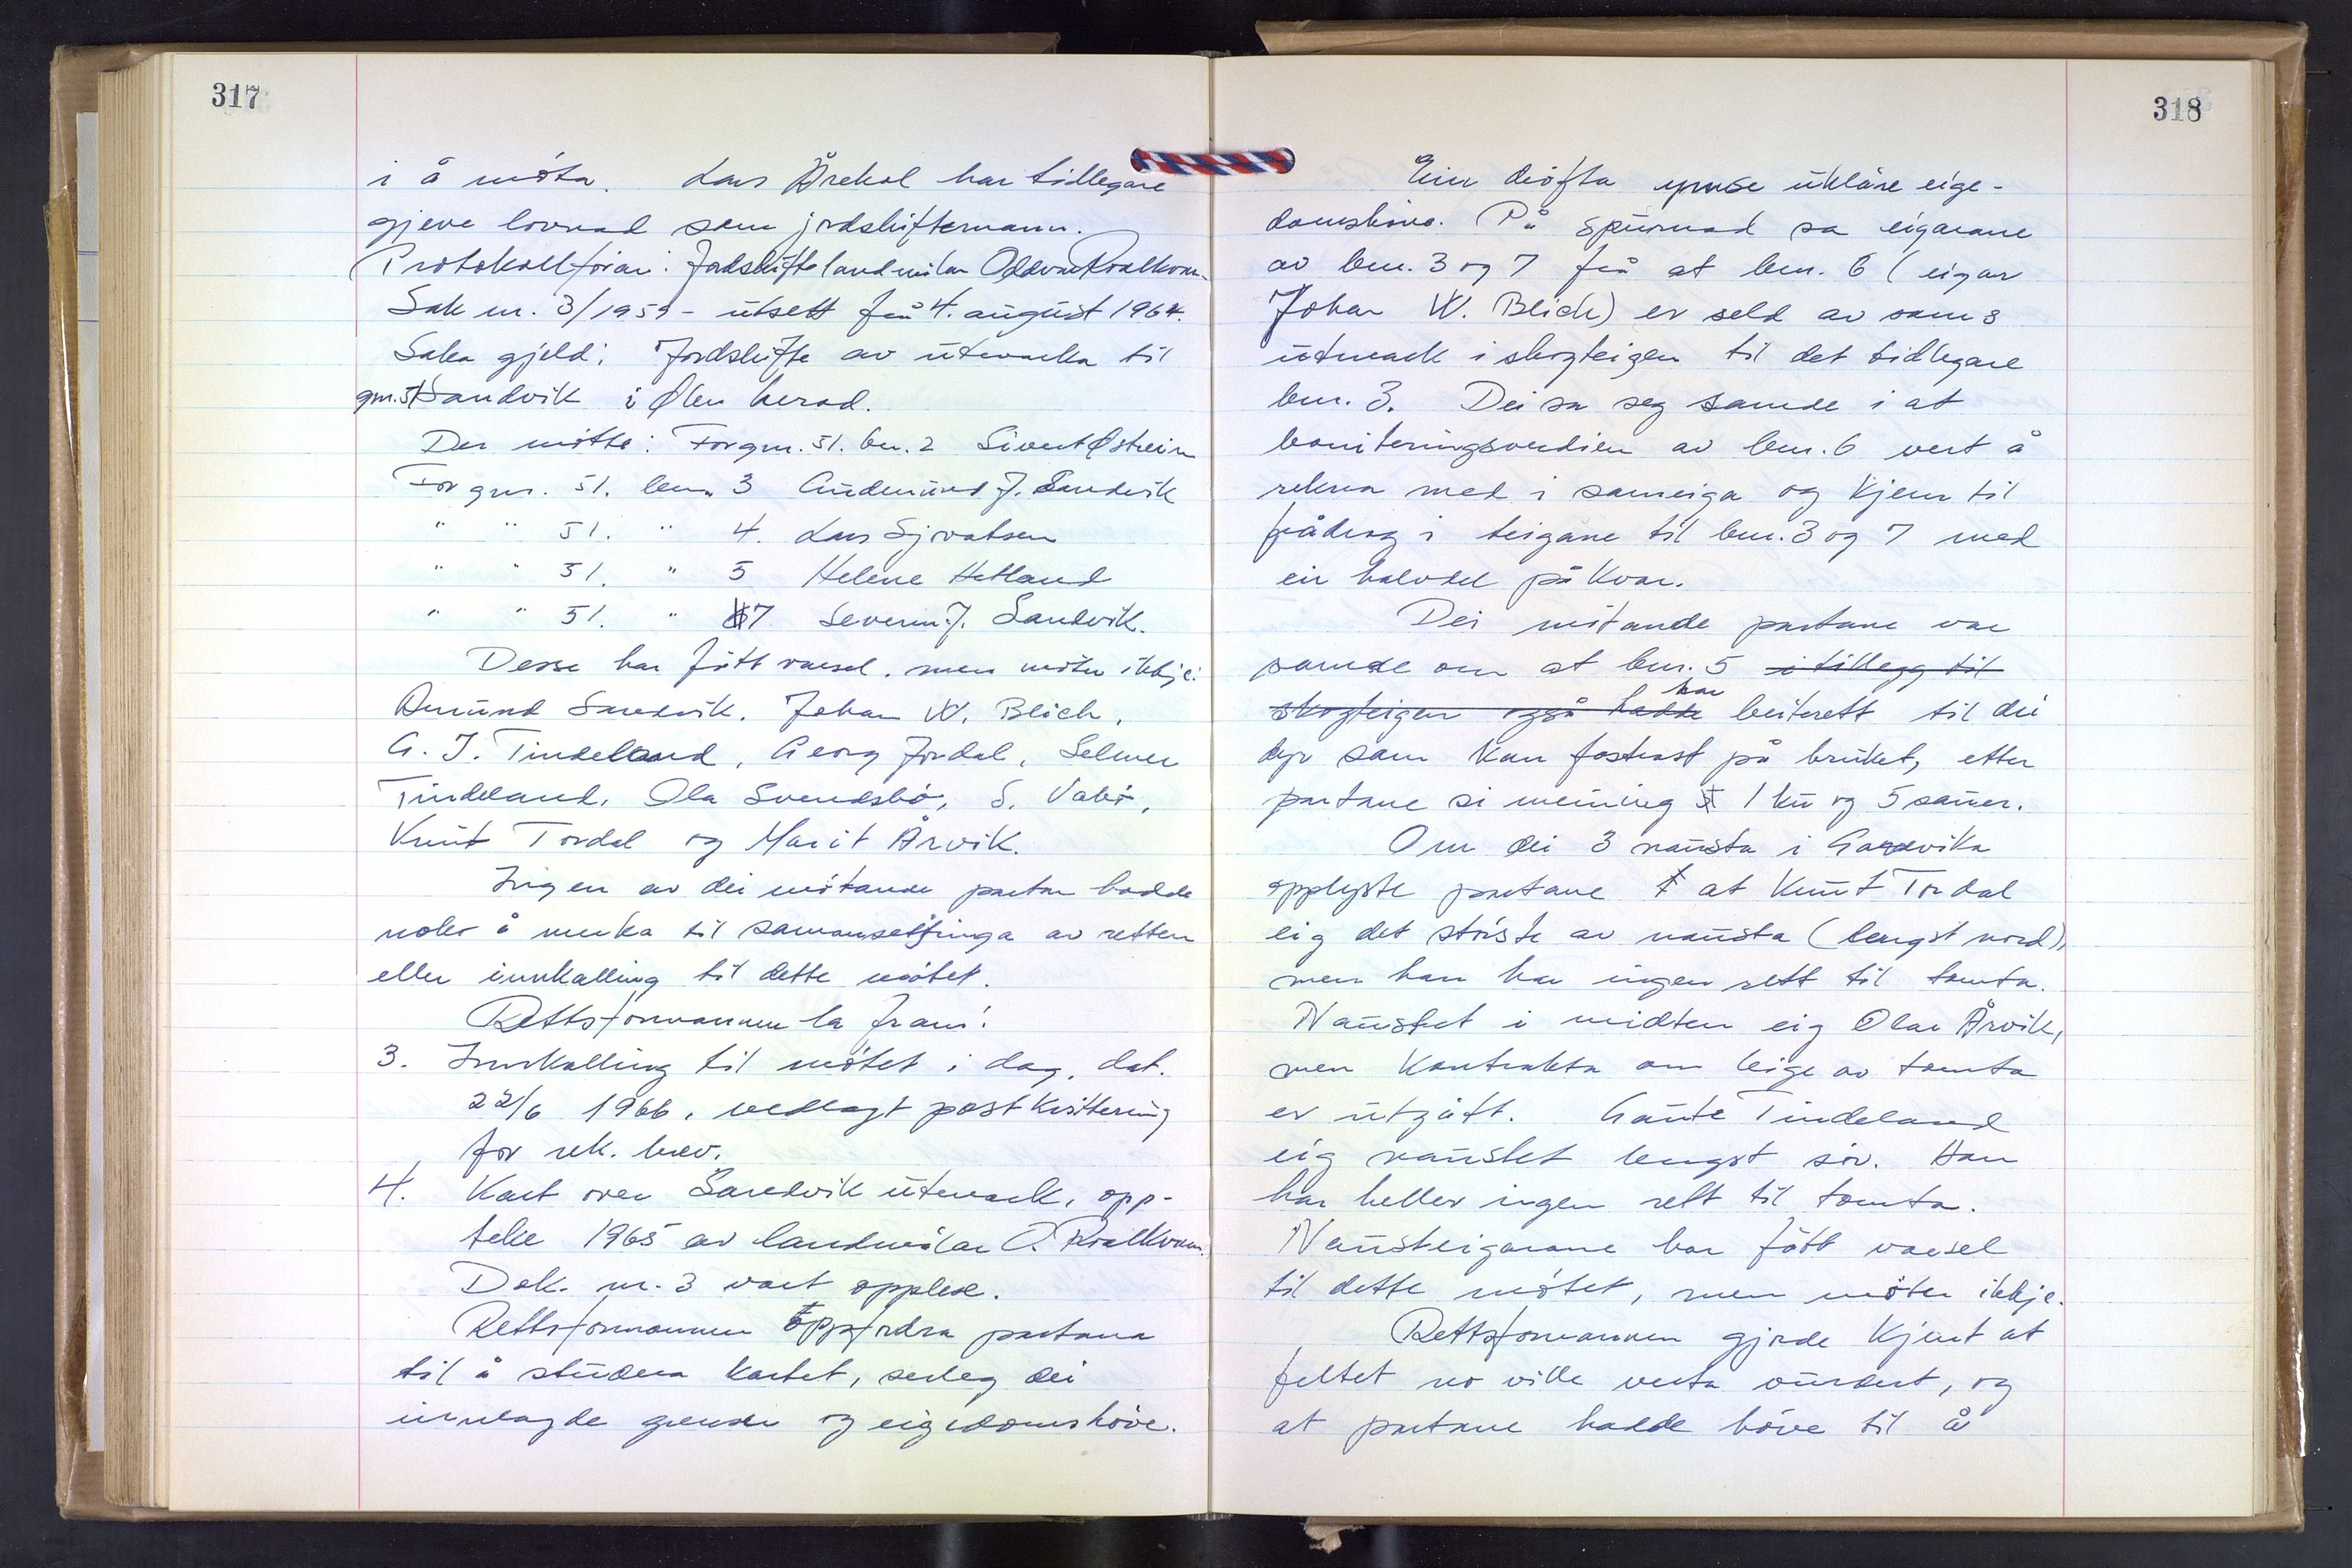 317
i å møta. Lars Årekol har tidlegare
gjeve lovnad som jordskiftemann.
Protokollførar: Jordskiftelandmålar Oddvar Kvalkom.
Sak nr. 3/1959 - utsett frå 4. august 1964.
Saka gjeld: Jordskifte av utmarka til
gnr. 51 Sandvik i Ølen herad.
Der møtte: For gnr. 51. bnr. 2 Sivert Østrein
For gnr. 51. bnr. 3 Andemund J. Sandvik
" " 51. " 4. Lars Sjovatsen
" " 51. " 5 Helene Hetland
" " 51. " 7 Severin J. Sandvik.
Desse har fått varsel, men møter ikkje:
Amund Sandvik, Johan W. Blich,
G. J. Tindeland, Georg Jordal, Selmer
Tindeland, Ola Svendsbø, S. Vabø,
Knut Tordal og Marit Årvik.
Ingen av dei møtande partar hadde
noko å merka til samansettinga av retten
eller innkalling til dette møtet.
Rettsformannen la fram:
3. Innkalling til møtet i dag, dat.
22/6 1966, vedlagt postkvittering
for rek. brev.
4. Kart over Sandvik utmark, opp-
teke 1965 av landmålar O. Kvalkvam.
Dok. nr. 3 vart opplese.
Rettsformannen oppfordra partane
til å studera kartet, serleg dei
innlagde grenser og eigedomshøve.
318
Ein drøfta ymse uklåre eige-
domshøve. På spurnad sa eigarane
av bnr. 3 og 7 frå at bnr. 6 (eigar
Johan W. Blich) er seld av sams
utmark i skogteigen til det tidlegare
bnr. 3. Dei sa seg samde i at
boniteringsverdien av bnr. 6 vert å
rekna med i sameiga og kjem til
frådrag i teigane til bnr. 3 og 7 med
ein halvdel på kvar.
Dei møtande partane var
samde om at bnr. 5 i tillegg til
skogteigen også hadde har beiterett til dei
dyr som kan fostrast på bruket, etter
partane si meining 1 ku og 5 sauer.
Om dei 3 nausta i Gardvika
opplyste partane at Knut Tordal
eig det største av nausta (lengst nord),
men han har ingen rett til tomta.
Naustet i midten eig Olav Årvik,
men kontrakta om leige av tomta
er utgått. Gaute Tindeland
eig naustet lengst sør. Han
har heller ingen rett til tomta.
Nausteigarane har fått varsel
til dette møtet, men møter ikkje.
Rettsformannen gjorde kjent at
feltet no ville verta vurdert, og
at partane hadde høve til å